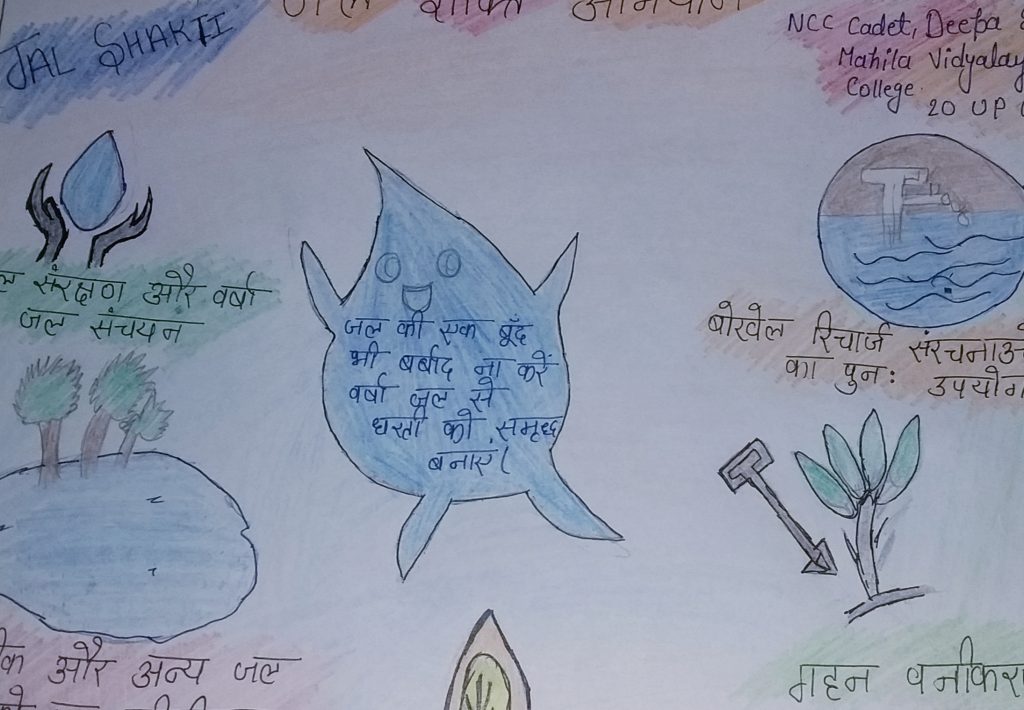 JAL SHAKTI
जल शक्ति अभियान
NCC Cadet, Deepa
Mahila Vidyalay
College.
20 UP
संरक्षण और वर्षा
जल संचयन
जल की एक बूँद
भी बर्बाद ना करें
वर्षा जल से
धरती को समृध्द
बनाएं।
बोरवेल रिचार्ज संरचनाओं
का पुनः उपयोग
और अन्य जल
गहन वनीकर